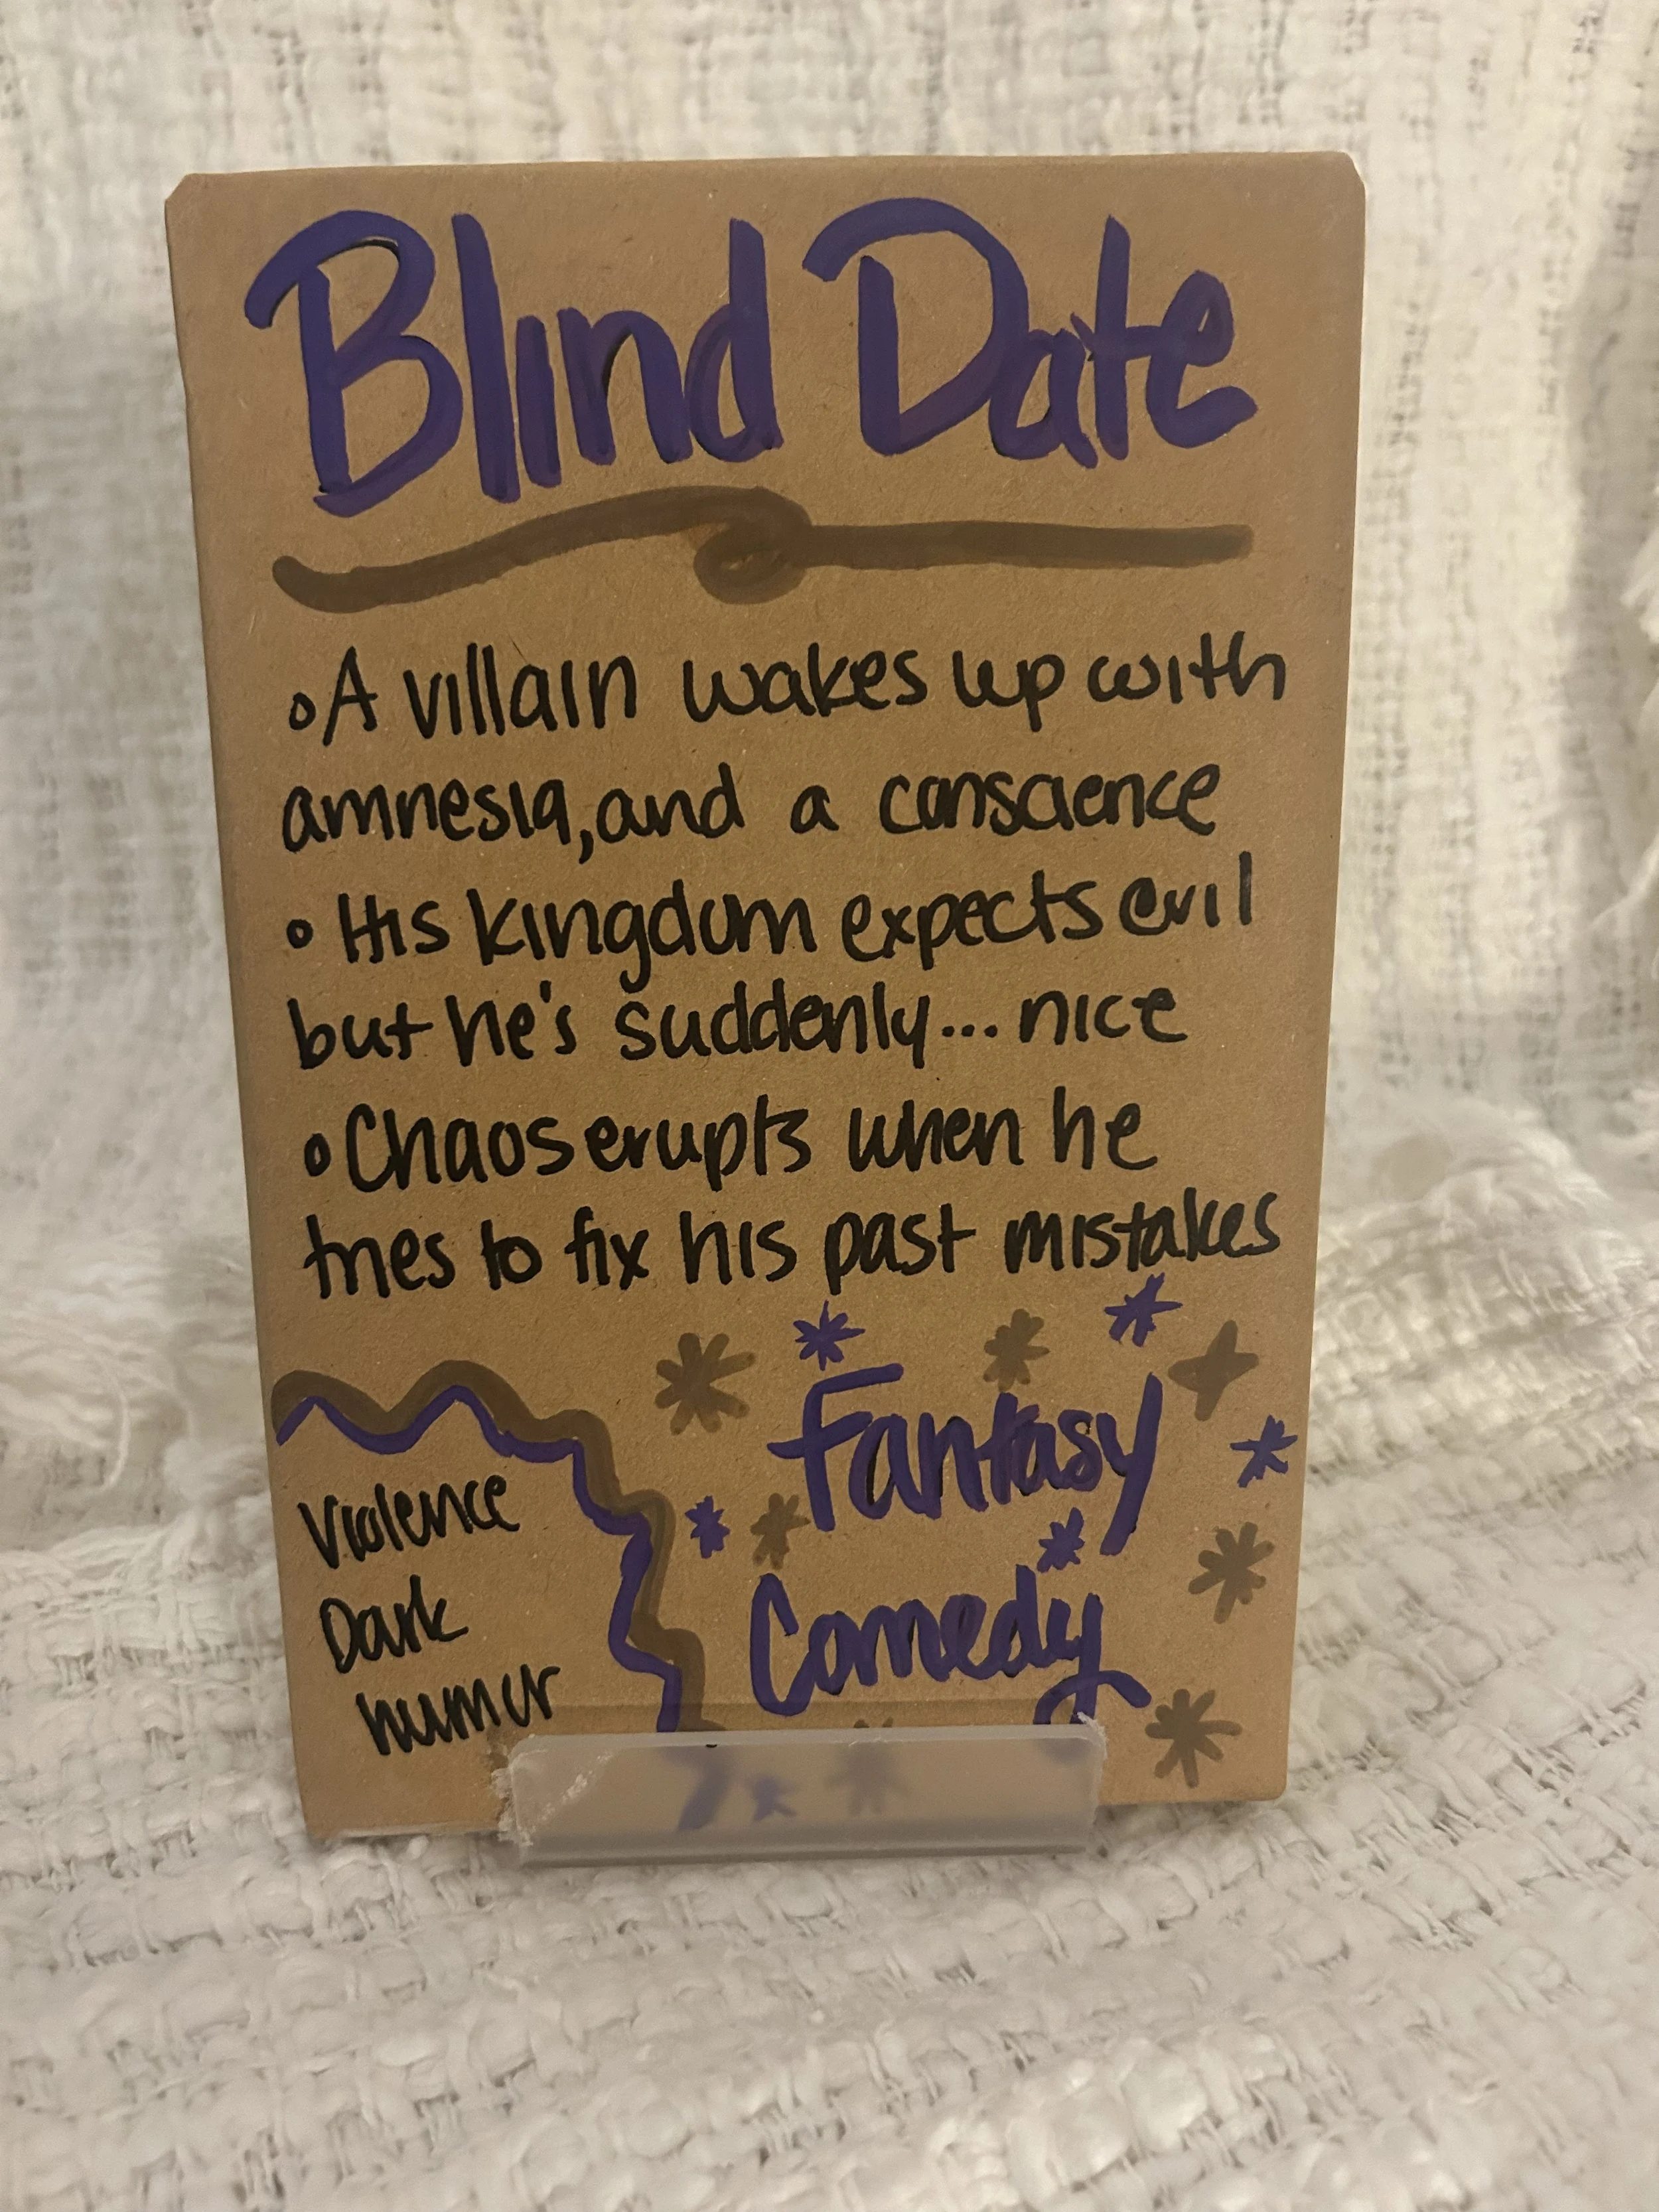 Blind Date
•A villain wakes up with
amnesia, and a conscience
• His kingdom expects evil
but he's suddenly... nice
•Chaos erupts when he
tries to fix his past mistakes
Fantasy
Comedy
Violence
Dark
humor